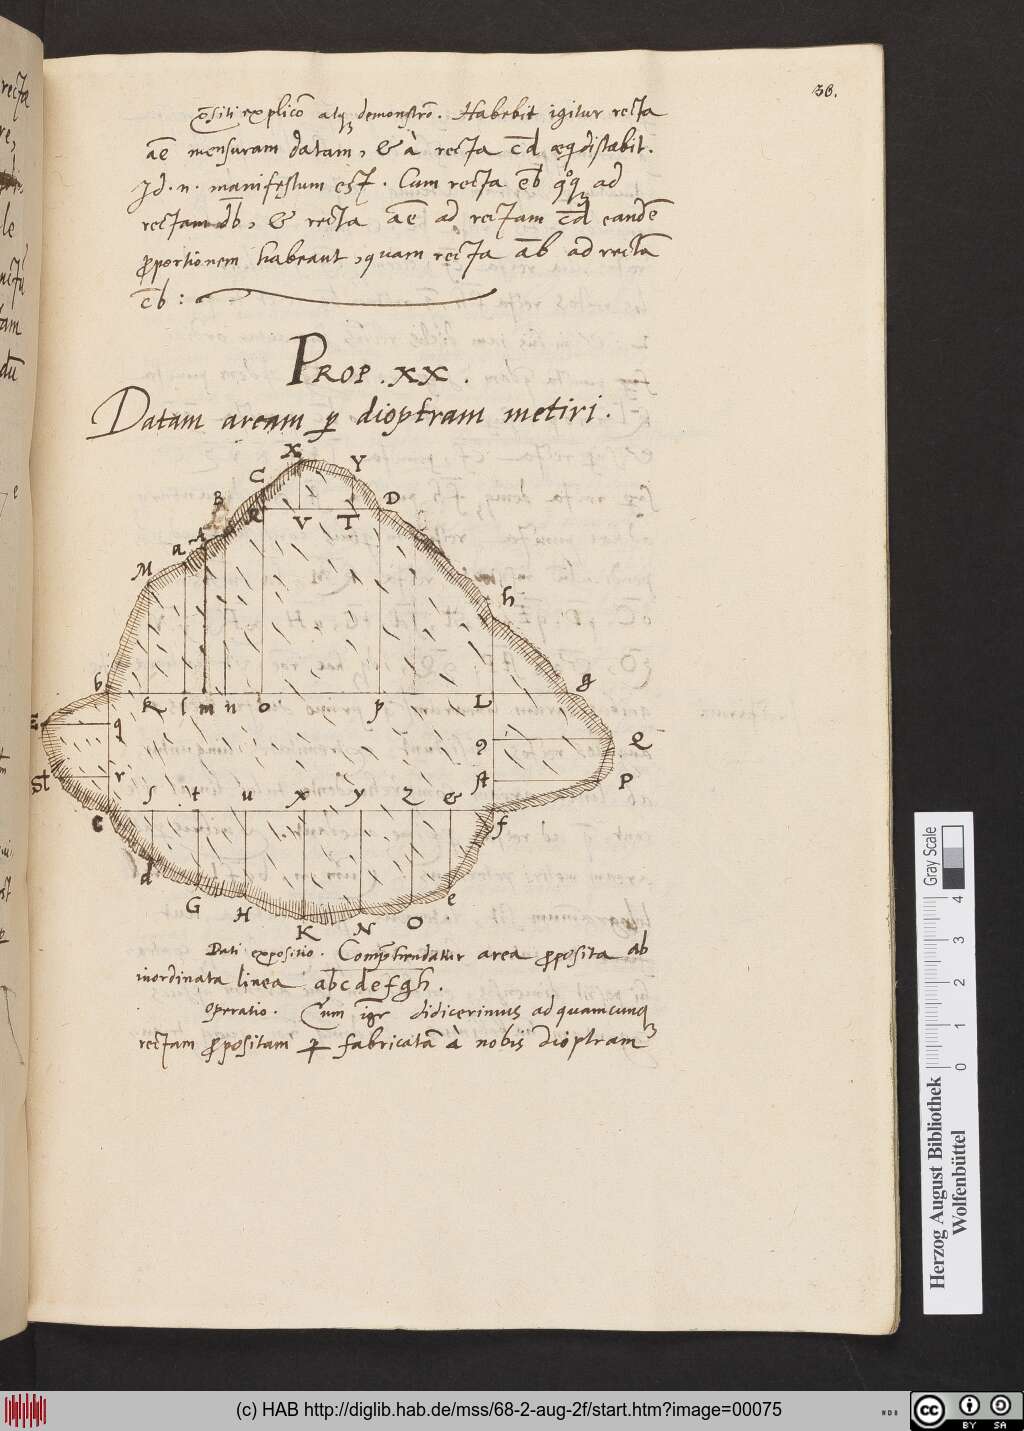 38.
ositi explicõ atq demonstrõ. Habebit igitur recta
ae mensuram datam, & à recta cd æqdistabit.
Id. n. manifestum est. Cum recta eb qoq ad
rectam db, & recta ae ad rectam cd eandẽ
proportionem habeant, quam recta ab ad rectã
eb:
PROP. XX.
Datam aream p dioptram metiri.
X Y
C D
B
R V T
a A
M
h
b g
k l m n o p L
E q
9 Q
St r St P
s t u x y z &
c f
d
G H K N O e
Dati expositio. Comprehendatur area proposita ab
inordinata linea abcdefgh.
Operatio. Cum igr didicerimus ad quamcunq
rectam propositam p fabricatã à nobis dioptram
recta
re,
le
tam
dũ
Gray Scale
0 1 2 3 4
Herzog August Bibliothek
Wolfenbüttel
(c) HAB http://diglib.hab.de/mss/68-2-aug-2f/start.htm?image=00075
WDB
cc BY SA